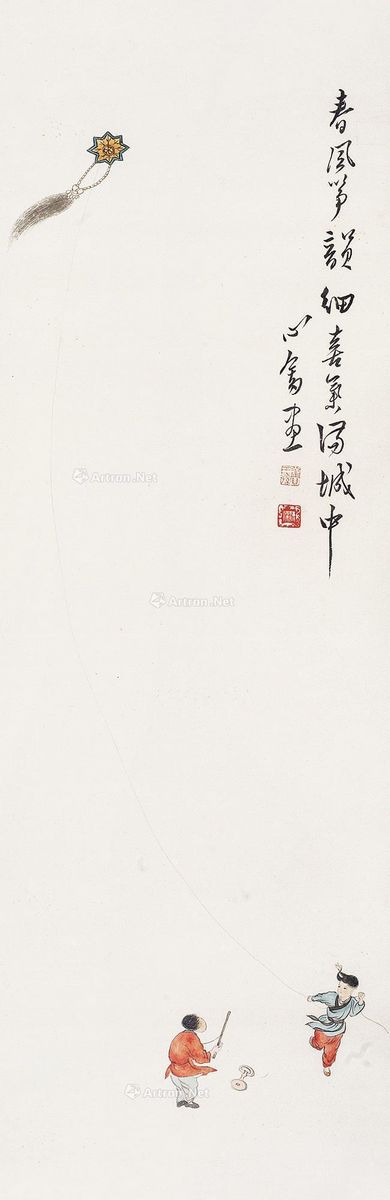 春風箏韻細喜氣滿城中
心畬畫
Artron.Net
Artron.Net
Artron.Net